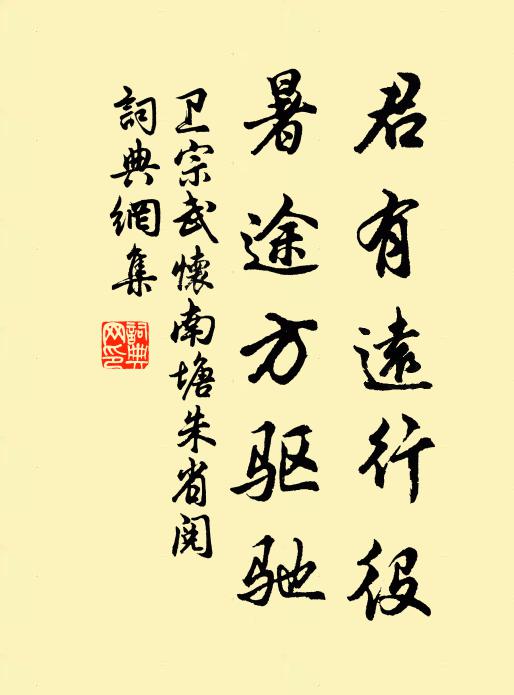 君有遠行役
暑途方驱驰
卫宗武懷南塘朱省阅
詞典網集
詞典网印